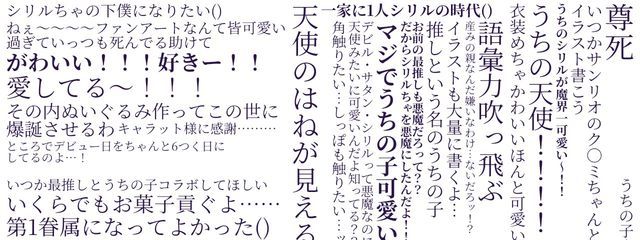 シリルちゃの下僕になりたい()
ねぇ〜〜〜〜ファンアートなんて皆可愛い
過ぎていっつも死んでる助けて
がわいい！！！好きー！！
愛してる〜！！！
その内ぬいぐるみ作ってこの世に
爆誕させるわ キャラット様に感謝………
ところでデビュー日をちゃんと6つく日に
してるのよ…！
いつか最推しとうちの子コラボしてほしい
いくらでもお菓子貢ぐよ……
第1眷属になってよかった()
一家に1人シリルの時代()
尊死
いつかサンリオのク〇ミちゃんと
イラスト書こう
うちのシリルが魔界一可愛い〜！！
うちの天使！！！！
衣装めちゃかわいいほんと可愛い
語彙力吹っ飛ぶ
産みの親なんだ嫌いなわけ…ないだろッ！？
イラストも大量に書くよ…
推しという名のうちの子
お前の最推しも悪魔だろって？
だからシリルちゃを悪魔にしたんだよ！！
マジでうちの子可愛い
デビル・サタン・シリルって悪魔なのに
天使みたいに可愛いんだよ知ってる？？
角触りたい…しっぽも触りたい…ッ
天使のはねが見える
うちの子